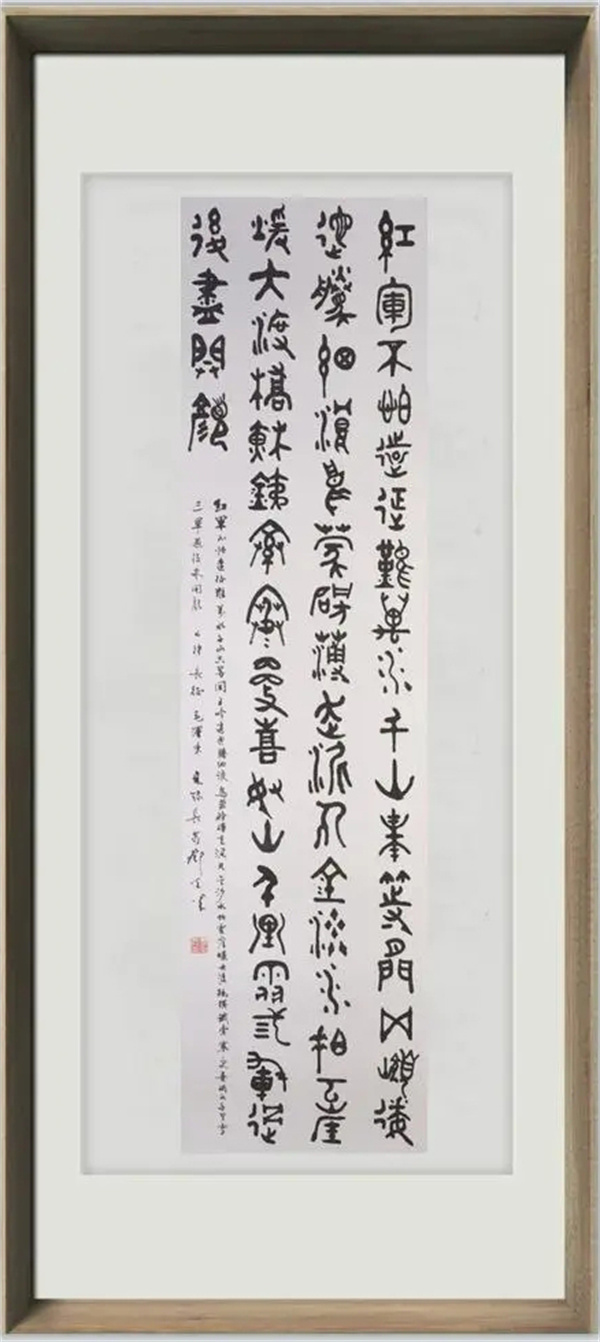 紅軍不怕遠征難萬水千山隻等閒五嶺逶
迤騰細浪烏蒙磅礴走泥丸金沙水拍雲崖
暖大渡橋橫鐵索寒更喜岷山千里雪三軍過
後盡開顏
紅軍不怕遠征難萬水千山只等閒五嶺逶迤騰細浪烏蒙磅礴走泥丸金沙水拍雲崖暖大渡橋橫鐵索寒更喜岷山千里雪
三軍過後盡開顏 七律 長征 毛澤東